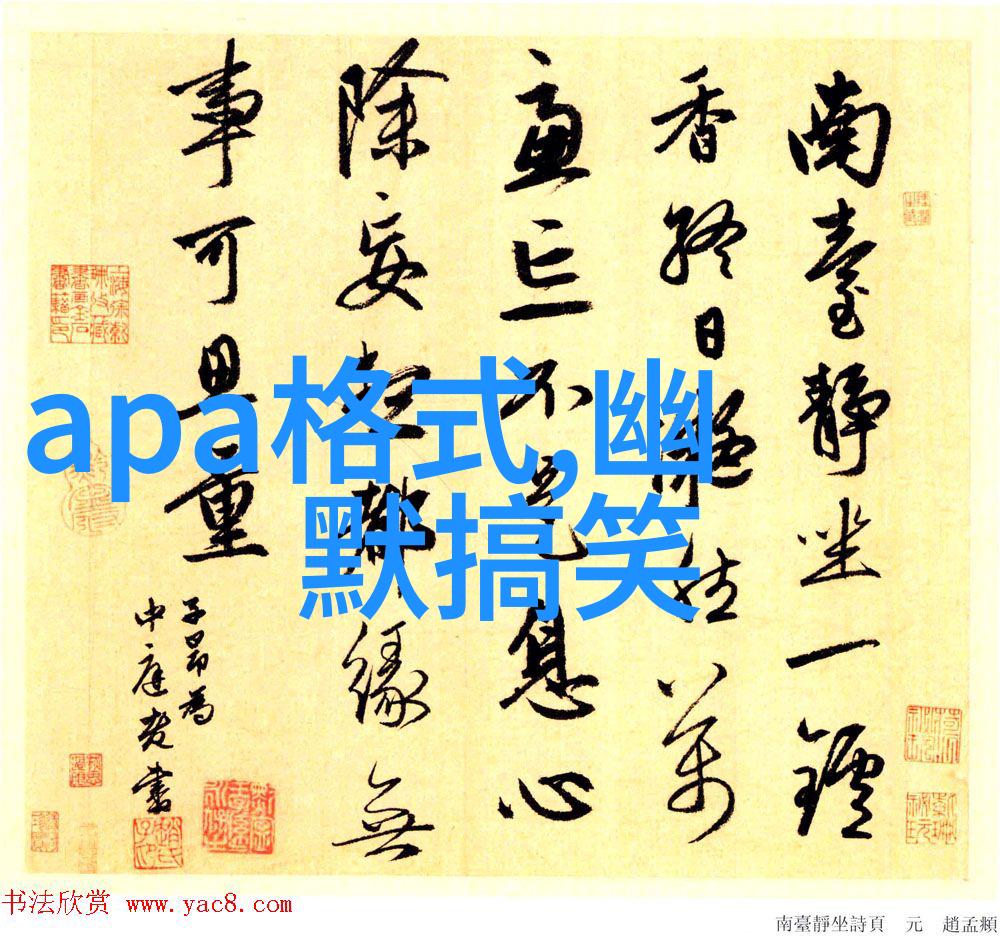 南臺靜坐一鑪
香終日凝然萬
慮亡不是息心
除妄想都緣無
事可思量
子昂為
中庭老書
apa格式,幽
默搞笑
书法欣赏 www.yac8.com
南臺靜坐詩頁 元 趙孟頫